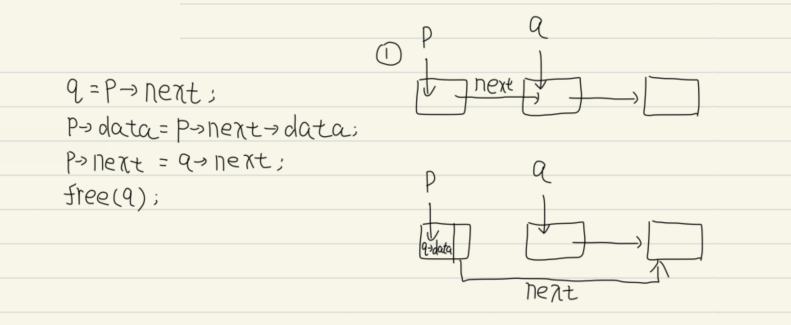 q = p→next;
p→data = p→next→data;
p→next = q→next;
free(q);
① p q
next
p q
q→data
next